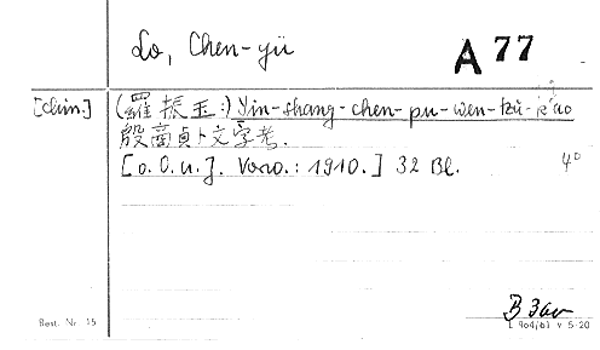 Lo, Chen-yü
A 77
[chin.] (羅振玉:) Yin-shang-chen-pu-wen-tzŭ-k'ao
殷商貞卜文字考.
[o. O. u. J. Vorw.: 1910.] 32 Bl. 4°
Best. Nr. 15